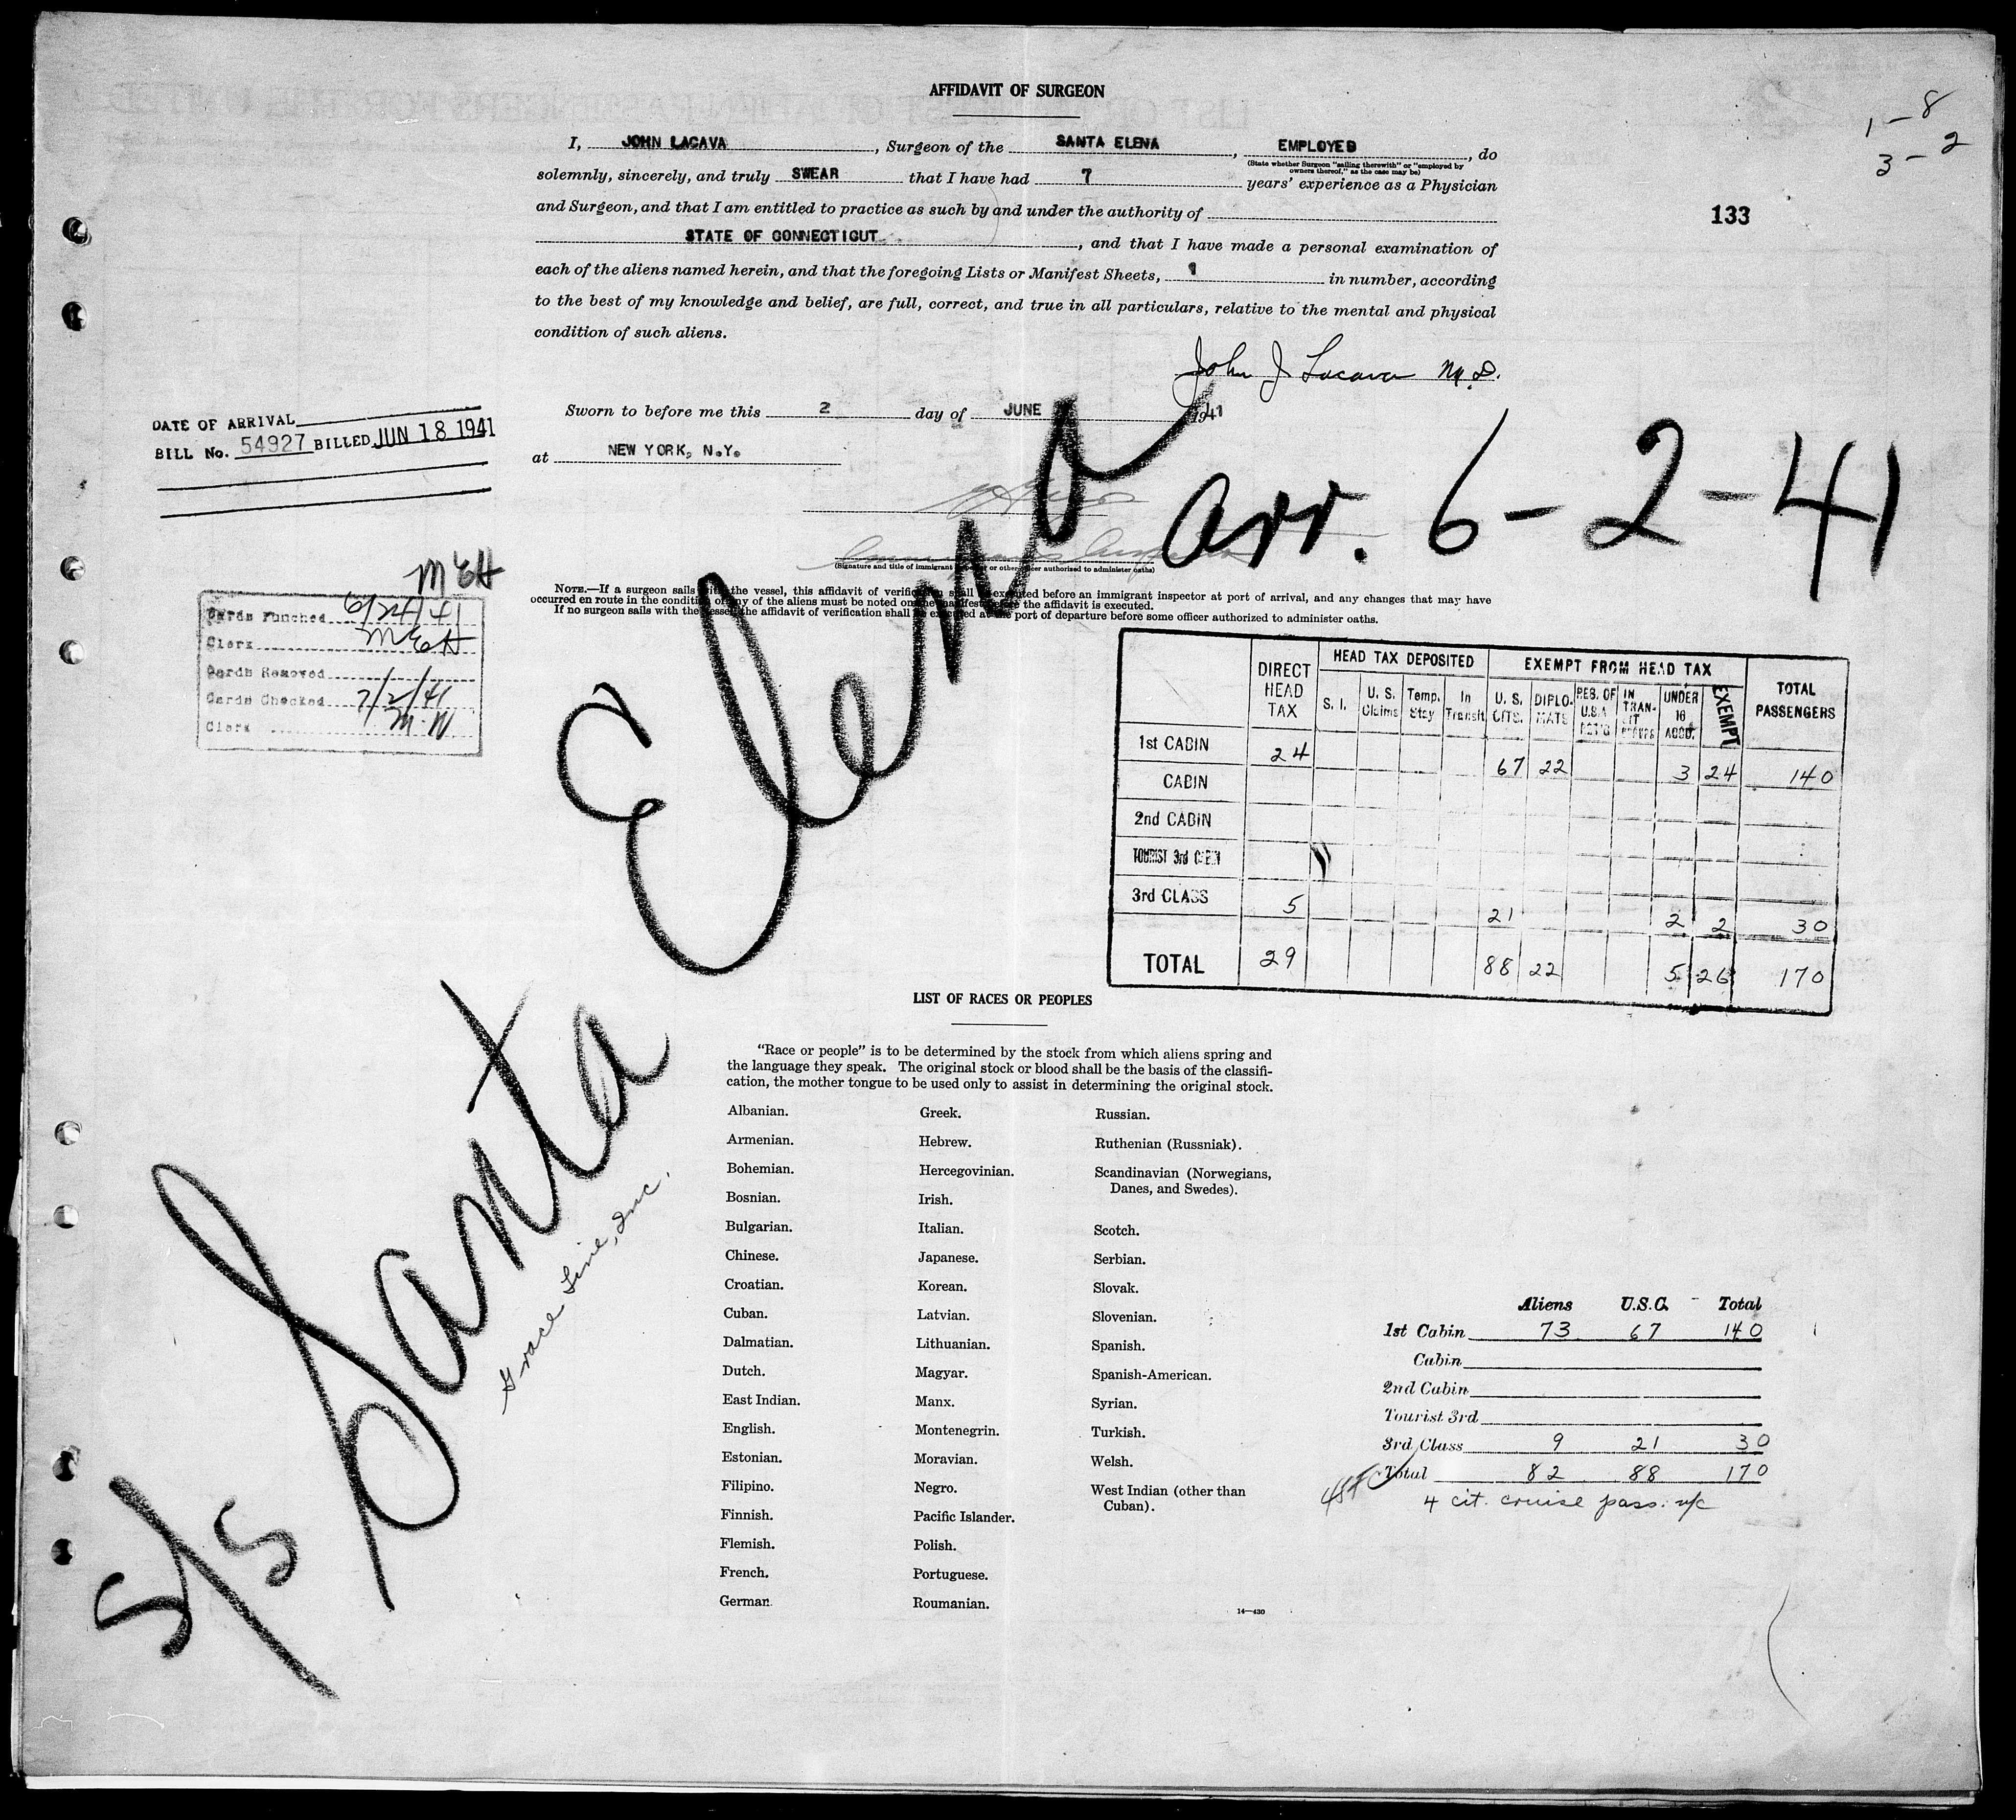 AFFIDAVIT OF SURGEON
1 - 8
3 - 2
133
I, JOHN LACAVA, Surgeon of the SANTA ELENA, EMPLOYED, do
(State whether Surgeon "sailing therewith" or "employed by
owners thereof," as the case may be)
solemnly, sincerely, and truly SWEAR that I have had 7 years' experience as a Physician
and Surgeon, and that I am entitled to practice as such by and under the authority of
STATE OF CONNECTICUT, and that I have made a personal examination of
each of the aliens named herein, and that the foregoing Lists or Manifest Sheets, in number, according
to the best of my knowledge and belief, are full, correct, and true in all particulars, relative to the mental and physical
condition of such aliens.
John J Lacava M.D.
Sworn to before me this 2 day of JUNE 1941
at NEW YORK, N.Y.
DATE OF ARRIVAL
BILL No. 54927 BILLED JUN 18 1941
arr. 6-2-41
(Signature and title of immigrant inspector or other officer authorized to administer oaths)
NOTE.—If a surgeon sails with the vessel, this affidavit of verification shall be executed before an immigrant inspector at port of arrival, and any changes that may have
occurred en route in the condition of any of the aliens must be noted on the manifest before the affidavit is executed.
If no surgeon sails with the vessel, the affidavit of verification shall be executed at the port of departure before some officer authorized to administer oaths.
MEH
Cards Punched 6/24/41
Clerk MEH
Cards Removed
Cards Checked 7/2/41
Clerk M.W
S/S Santa Elena
Grace Line, Inc.
DIRECT HEAD TAX HEAD TAX DEPOSITED EXEMPT FROM HEAD TAX TOTAL PASSENGERS
S. I. U. S. Claims Temp. Stay In Transit U. S. CITS. DIPLO-MATS RES. OF U.S.A RET'G IN TRAN-SIT UNDER 16 ACCO. EXEMPT
1st CABIN 24 67 22 3 24 140
CABIN
2nd CABIN
TOURIST 3rd CABIN
3rd CLASS 5 21 2 2 30
TOTAL 29 88 22 5 26 170
LIST OF RACES OR PEOPLES
"Race or people" is to be determined by the stock from which aliens spring and
the language they speak. The original stock or blood shall be the basis of the classifi-
cation, the mother tongue to be used only to assist in determining the original stock.
Albanian.
Armenian.
Bohemian.
Bosnian.
Bulgarian.
Chinese.
Croatian.
Cuban.
Dalmatian.
Dutch.
East Indian.
English.
Estonian.
Filipino.
Finnish.
Flemish.
French.
German.
Greek.
Hebrew.
Hercegovinian.
Irish.
Italian.
Japanese.
Korean.
Latvian.
Lithuanian.
Magyar.
Manx.
Montenegrin.
Moravian.
Negro.
Pacific Islander.
Polish.
Portuguese.
Roumanian.
Russian.
Ruthenian (Russniak).
Scandinavian (Norwegians,
Danes, and Swedes).
Scotch.
Serbian.
Slovak.
Slovenian.
Spanish.
Spanish-American.
Syrian.
Turkish.
Welsh.
West Indian (other than
Cuban).
14—430
Aliens U.S.C. Total
1st Cabin 73 67 140
Cabin
2nd Cabin
Tourist 3rd
3rd Class 9 21 30
Total 82 88 170
4 cit. cruise pass. n/c